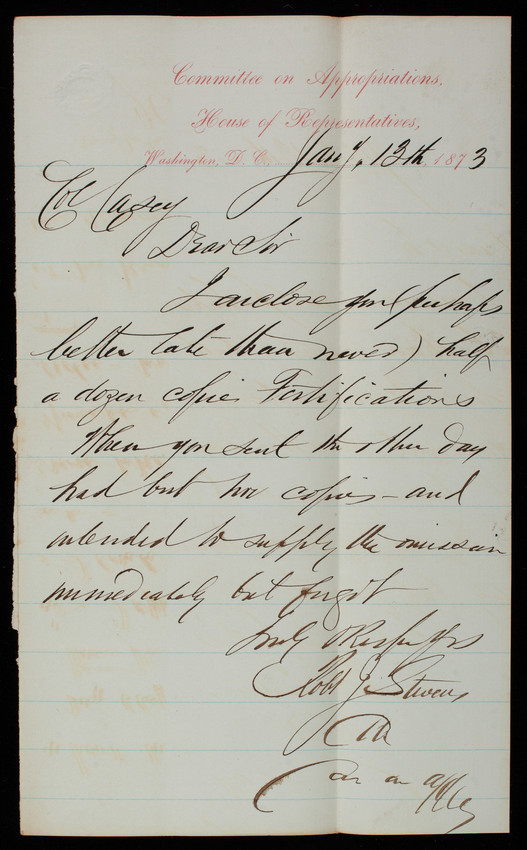 Committee on Appropriations,
House of Representatives,
Washington, D. C., Jany. 13th, 1873
Col Casey
Dear Sir
I enclose you (perhaps
better late than never) half
a dozen copies Fortifications
When you sent the other day
had but two copies - and
intended to supply the omission
immediately but forgot
Truly & Respy Yrs
Robt J. Stevens
Clk
Com on